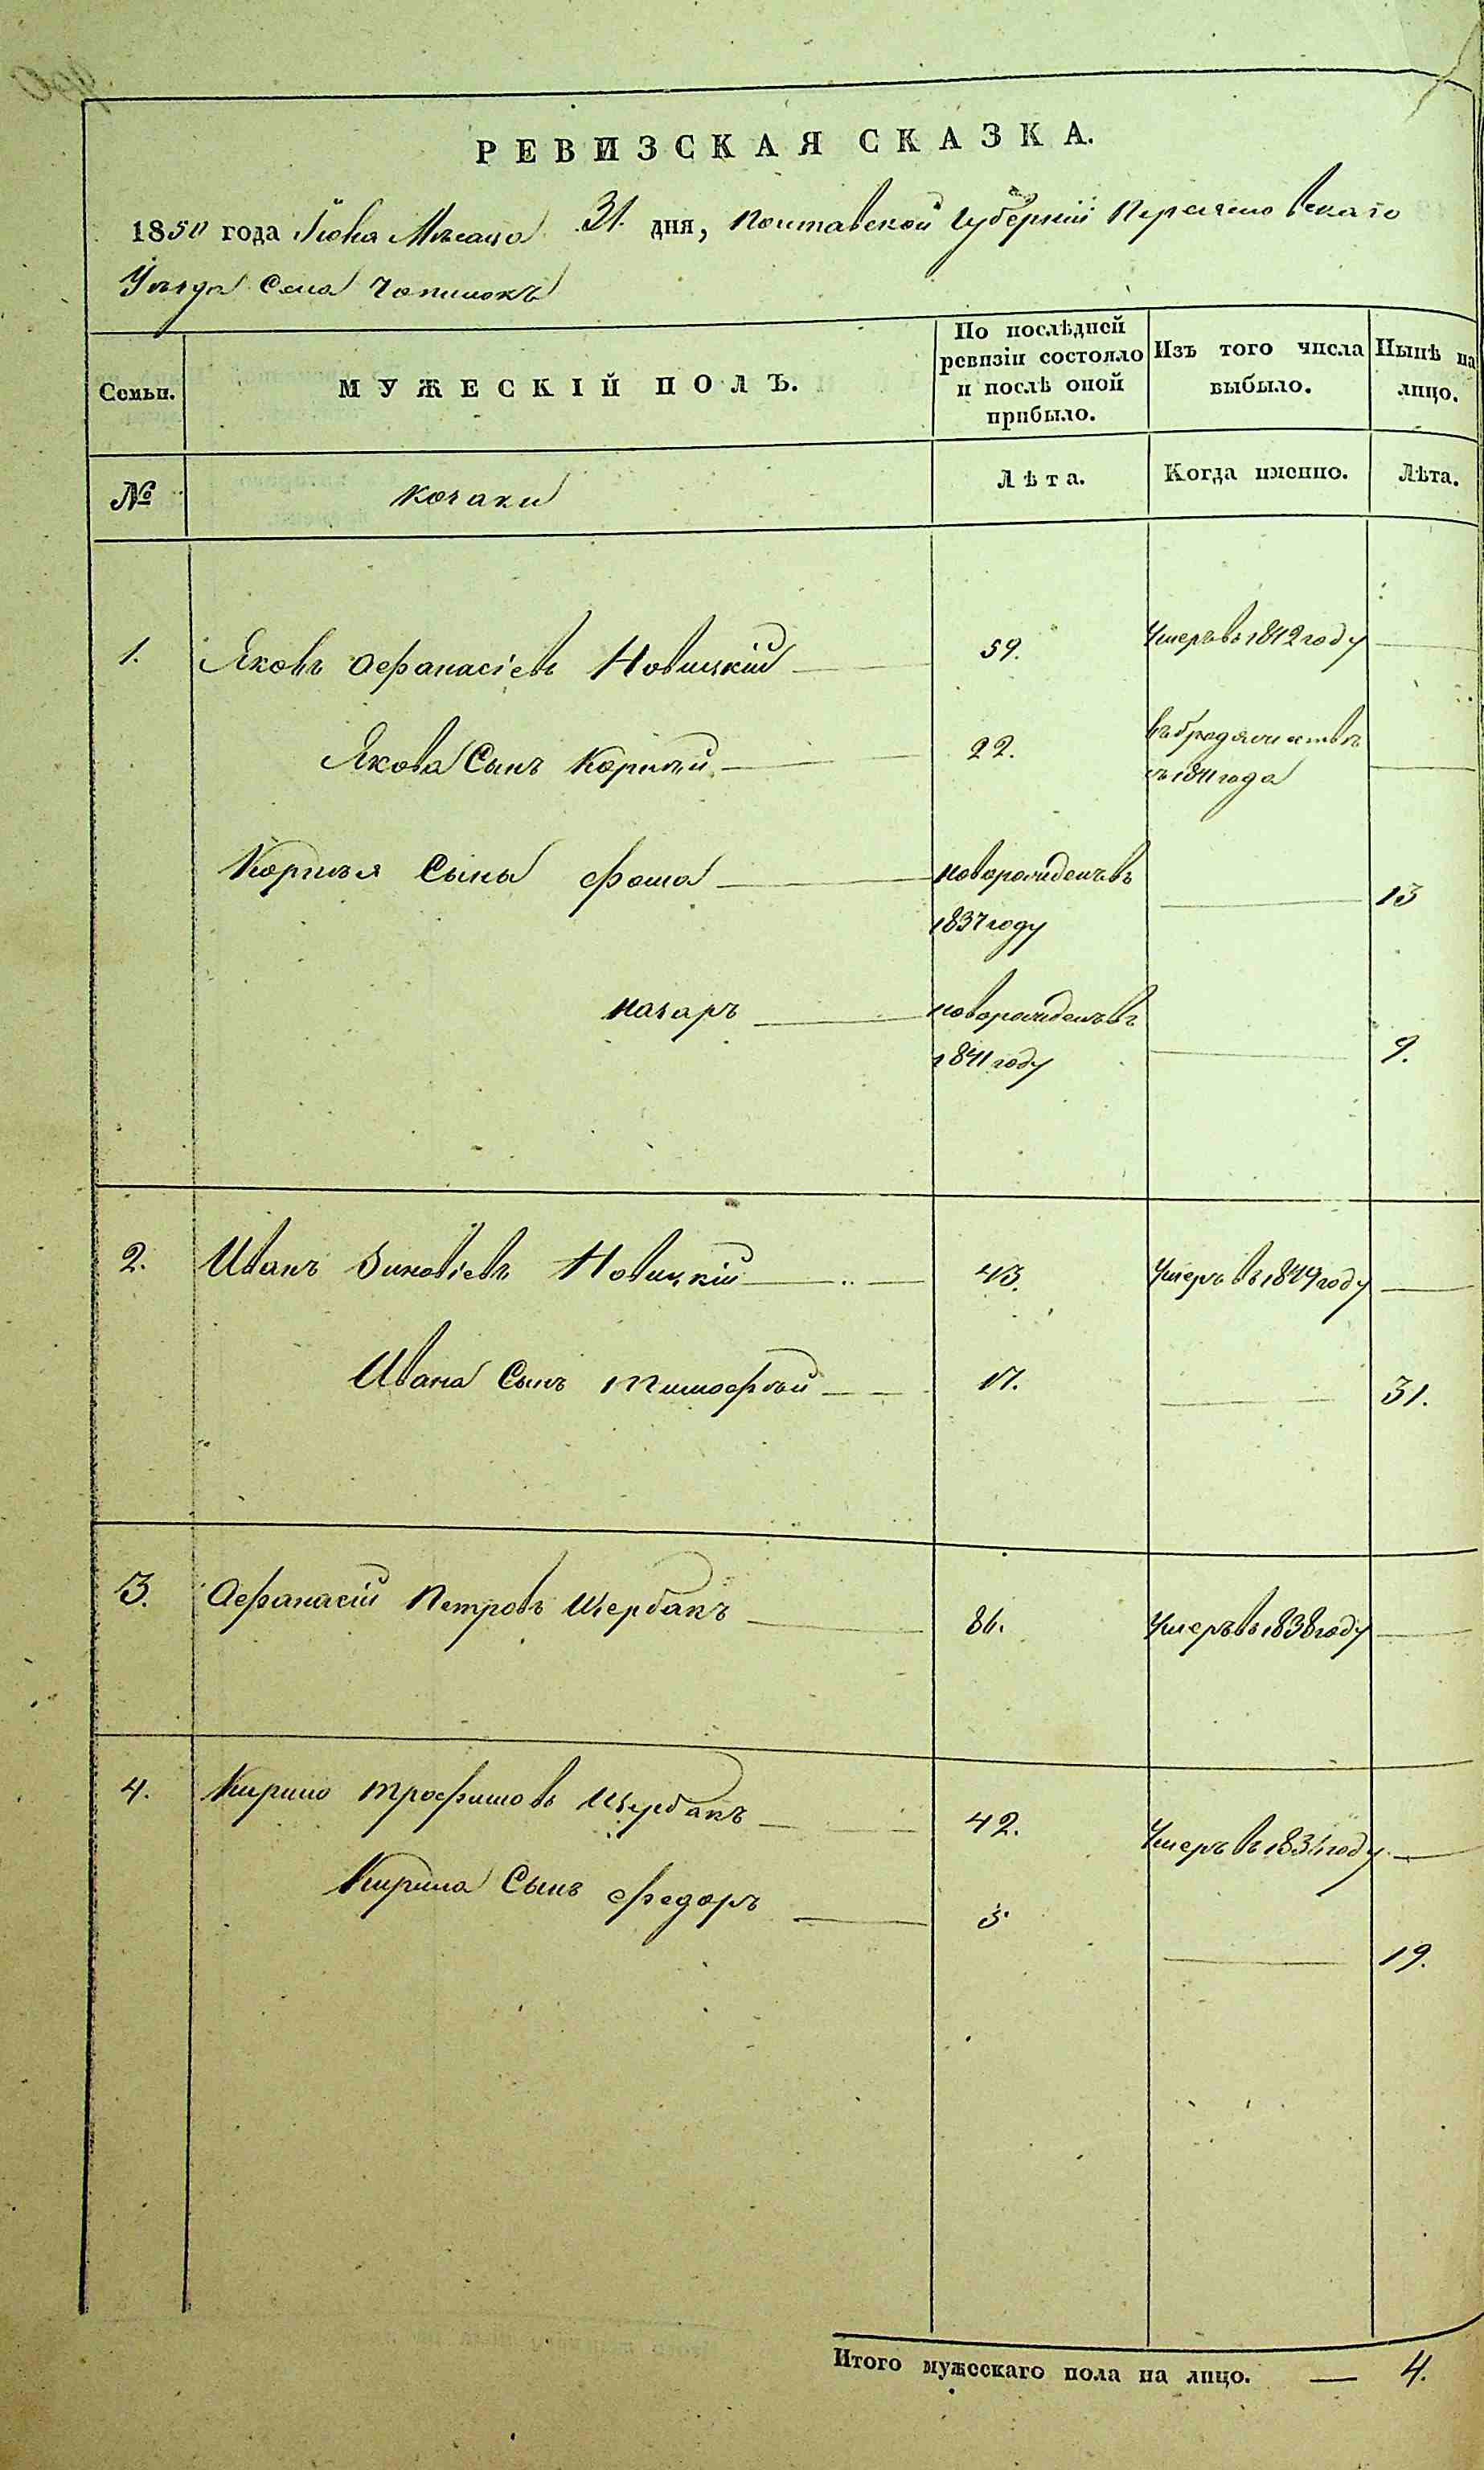 РЕВИЗСКАЯ СКАЗКА.
1850 года Іюня Мѣсяца 31. дня, Полтавской Губерніи Переяславскаго
Уѣзда Села Чопилокъ
Семьи.
МУЖЕСКІЙ ПОЛЪ.
По послѣдней
ревизіи состояло
и послѣ оной
прибыло.
Изъ того числа
выбыло.
Нынѣ на
лицо.
№
козаки
Лѣта.
Когда именно.
Лѣта.
1. Яковъ Афанасіевъ Новицкій 59. Умеръ въ 1842 году
Якова Сынъ Корнѣй 22. въ бродяжествѣ
съ 1841 года
Корнѣя Сыны Фома новорожденъ въ
1837 году 13
назаръ новорожденъ въ
1841 году 9.
2. Иванъ Зиновіевъ Новицкій 43. Умеръ въ 1849 году
Ивана Сынъ Тимофѣй 17. 31.
3. Афанасій Петровъ Щербакъ 86. Умеръ въ 1838 году
4. Кирило Трофимовъ Щербакъ 42. Умеръ въ году
Кирила Сынъ Федоръ 5. 19.
Итого мужескаго пола на лицо. — 4.